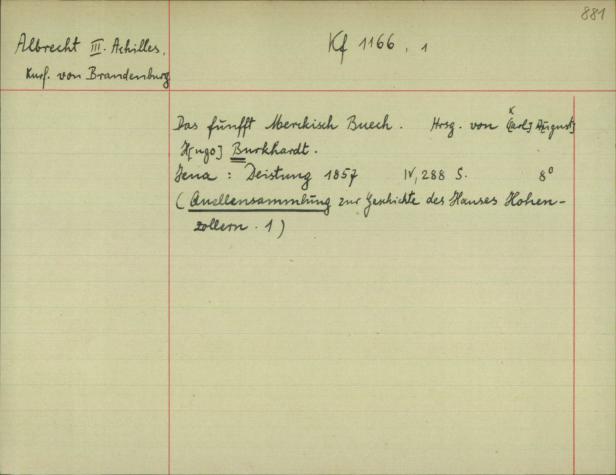 881
Albrecht III. Achilles, Kf 1166, 1
Kurf. von Brandenburg
Das fünfft Merckisch Buech. Hrsg. von C[arl] A[ugust]
H[ugo] Burkhardt.
Jena: Deistung 1857 IV, 288 S. 8°
(Quellensammlung zur Geschichte des Hauses Hohen-
zollern. 1)